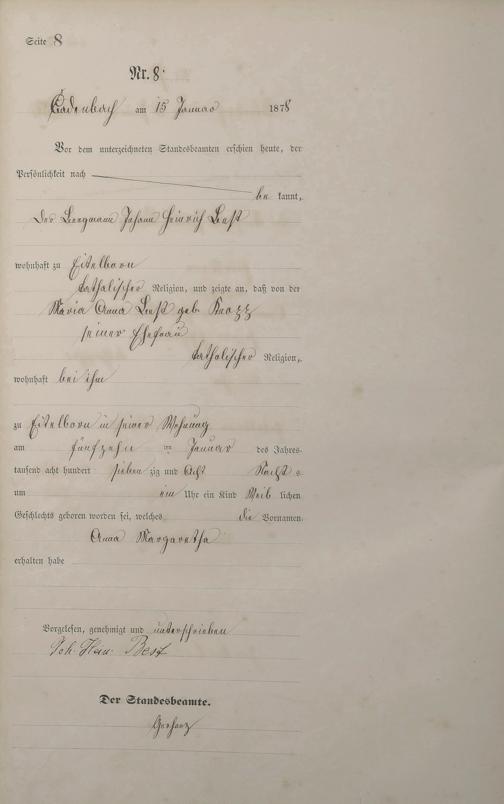 Seite 8
Nr. 8.
Cadenbach am 15 Januar 1878
Vor dem unterzeichneten Standesbeamten erschien heute, der
Persönlichkeit nach
be kannt,
der Bergmann Johann Heinrich Best
wohnhaft zu Eitelborn
katholischer Religion, und zeigte an, daß von der
Maria Anna Best geb. Knozz
seiner Ehefrau
katholischer Religion,
wohnhaft bei ihm
zu Eitelborn in seiner Wohnung
am fünfzehn ten Januar des Jahres
tausend acht hundert sieben zig und Acht Nachts
um ein Uhr ein Kind Weib lichen
Geschlechts geboren worden sei, welches die Vornamen
Anna Margaretha
erhalten habe
Vorgelesen, genehmigt und unterschrieben
Joh. Hein. Best
Der Standesbeamte.
Gerharz